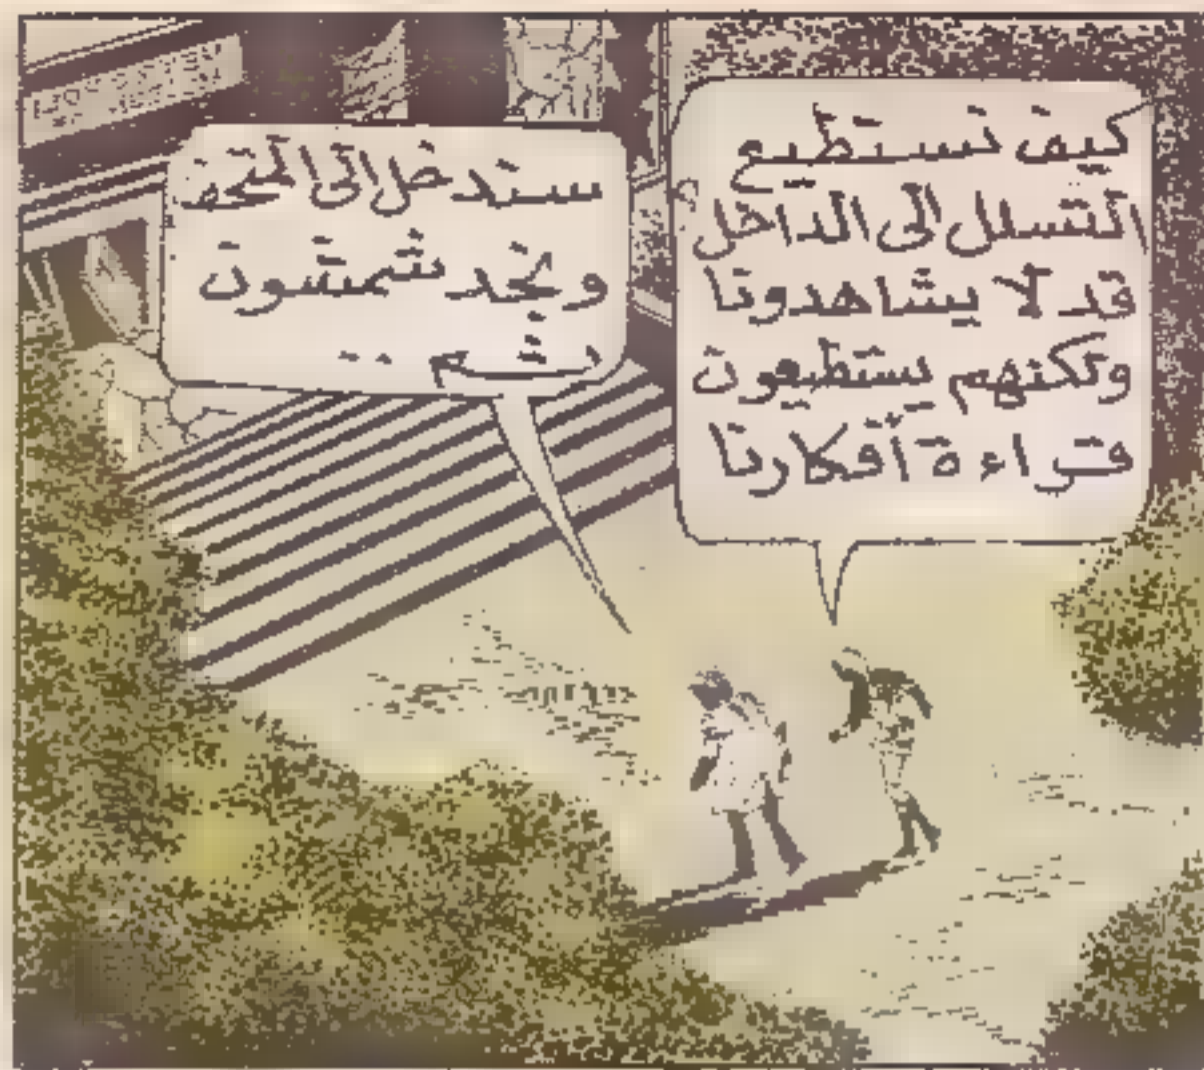 كيف تستطيع
التسلل إلى الداخل
قد لا يشاهدونا
ولكنهم يستطيعون
قراءة أفكارنا
ستدخل إلى المتحف
ونجد شمشون
ثم ..